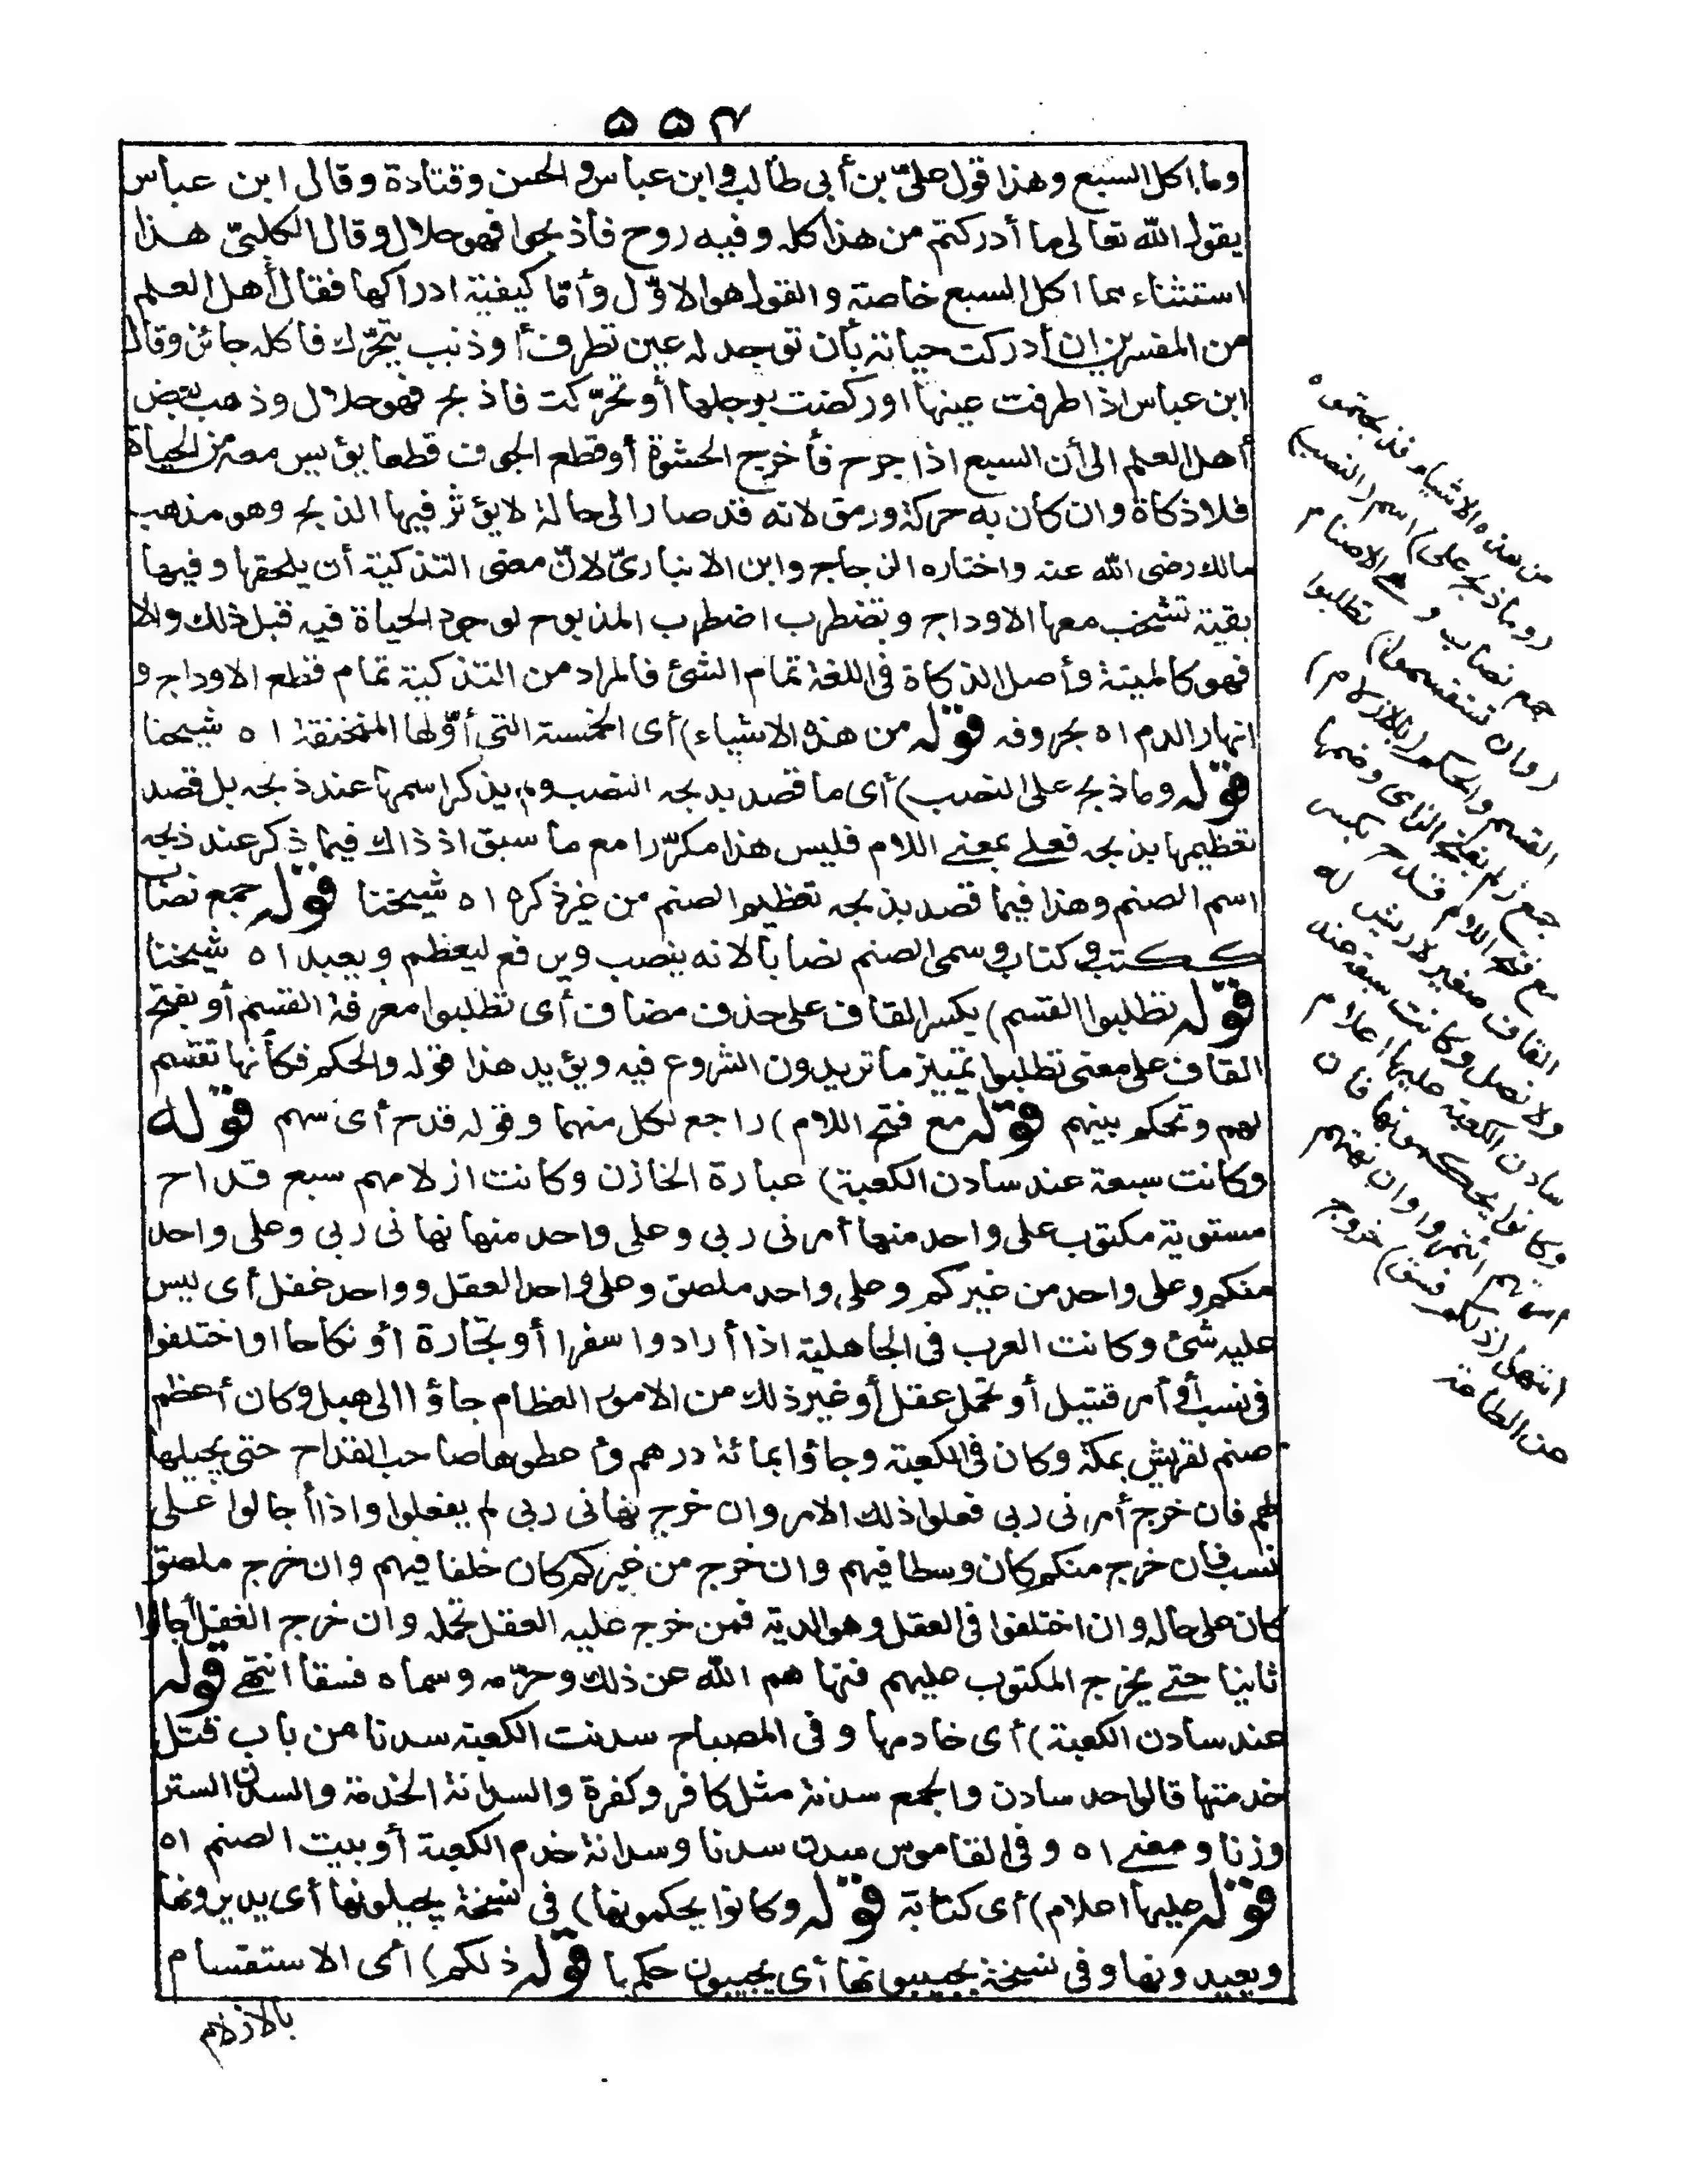 ۵۵۴
وما اكل السبع وهذا قول علىّ بن أبى طالب وابن عباس والحسن وقتادة وقال ابن عباس
يقول الله تعالى ما أدركتم من هذا كله وفيه روح فأذبحوا فهو حلال وقال الكلبىّ هذا
استثناء مما اكل السبع خاصة والقول هو الاوّل وأمّا كيفية ادراكها فقال أهل العلم
من المفسرين ان أدركت حياته بأن توجد له عين تطرف أوذنب يتحرّك فاكله جائز وقال
ابن عباس اذا طرفت عينها اوركضت برجلها أوتحرّكت فاذبح فهو حلال وذهب بعض
أهل العلم الى أن السبع اذا جرح فأخرج الحشوة أوقطع الجوف قطعا يؤيس معه من الحياة
فلا ذكاة وان كان به حركة ورمق لانه قد صار الى حالة لايؤثر فيها الذبح وهو مذهب
مالك رضى الله عنه واختاره الزجاج وابن الانبارىّ لانّ معنى التذكية أن يلحقها وفيها
بقية تشخب معها الاوداج وتضطرب اضطرب المذبوح لوجود الحياة فيه قبل ذلك والا
فهو كالميتة وأصل الذكاة فى اللغة تمام الشئ فالمراد من التذكية تمام قطع الاوداج و
انهار الدم اه بحروفه قوله من هذه الاشياء) أى الخمسة التى أوّلها المنخنقة اه شيخنا
قوله وماذبح على النصب) أى ما قصد بذبحه النصب ولم يذكر اسمها عند ذبحه بل قصد
تعظيمها بذبحه فعلى بمعنى اللام فليس هذا مكرّرا مع ما سبق اذ ذاك فيما ذكر عند ذبحه
اسم الصنم وهذا فيما قصد بذبحه تعظيم الصنم من غير ذكره اه شيخنا قوله جمع نصاب
ككتب وكتاب وسمى الصنم نصابا لانه ينصب ويرفع ليعظم ويعبد اه شيخنا
قوله تطلبوا القسم) بكسر القاف على حذف مضاف أى تطلبوا معرفة القسم أو بفتح
القاف على معنى تطلبوا تمييز ما تريدون الشروع فيه ويؤيد هذا قوله والحكم فكأنها تقسم
لهم وتحكم بينهم قوله مع فتح اللام) راجع لكل منهما وقوله قدح أى سهم قوله
وكانت سبعة عند سادن الكعبة) عبارة الخازن وكانت ازلامهم سبع قداح
مستوية مكتوب على واحد منها أمرنى ربى وعلى واحد منها نهانى ربى وعلى واحد
منكم وعلى واحد من غيركم وعلى واحد ملصق وعلى واحد العقل وواحد غفل أى ليس
عليه شئ وكانت العرب فى الجاهلية اذا أرادوا سفرا أو تجارة أو نكاحا اواختلفوا
فى نسب أو أمر قتيل أو تحمل عقل أو غير ذلك من الامور العظام جاؤا الى هبل وكان أعظم
صنم لقريش بمكة وكان فى الكعبة وجاؤا بمائة درهم وأعطوها صاحب القداح حتى يجيلها
لهم فان خرج أمرنى ربى فعلوا ذلك الامر وان خرج نهانى ربى لم يفعلوا واذا أجالوا على
نسب فان خرج منكم كان وسطا فيهم وان خرج من غيركم كان حلفا فيهم وان خرج ملصق
كان على حاله وان اختلفوا فى العقل وهو الدية فمن خرج عليه العقل تحمله وان خرج الغفل أجالوا
ثانيا حتى يخرج المكتوب عليهم فنهاهم الله عن ذلك وحرّمه وسماه فسقا انتهى قوله
عند سادن الكعبة) أى خادمها وفى المصباح سدنت الكعبة سدنا من باب قتل
خدمتها فالواحد سادن والجمع سدنة مثل كافر وكفرة والسدانة الخدمة والسدن الستر
وزنا ومعنى اه وفى القاموس سدن سدنا وسدانة خدم الكعبة أو بيت الصنم اه
قوله عليها اعلام) أى كتابة قوله وكانوا يحكمونها) فى نسخة يجيلونها أى يديرونها
ويعيدونها وفى نسخة يجيبونها أى يجيبون حكمها قوله ذلكم) أى الاستقسام
بالازلام
من هذه الاشياء فذبحتموه
(وما ذبح على) اسم (النصب)
جمع نصاب وهى الاصنام
(وان تستقسموا) تطلبوا
القسم والحكم (بالازلام)
جمع زلم بفتح الزاى وضمها
مع فتح اللام قدح بكسر
القاف صغير لاريش له
ولا نصل وكانت سبعة عند
سادن الكعبة عليها اعلام
وكانوا يحكمونها فان
امرتهم ائتمروا وان نهتهم
انتهوا (ذلكم فسق) خروج
عن الطاعة